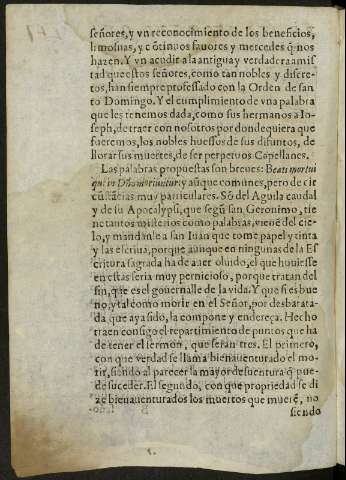 señores, y vn reconocimiento de los beneficios,
limosnas, y cõtinuos fauores y mercedes q̃ nos
hazen. Y vn acudir a la antigua y verdadera amis
tad que estos señores, como tan nobles y discre-
tos, han siempre professado con la Orden de san
to Domingo. Y el cumplimiento de vna palabra
que les tenemos dada, como sus hermanos a Io-
seph, de traer con nosotros por donde quiera que
fueremos, los nobles huessos de sus difuntos, de
llorar sus muertes, de ser perpetuos Capellanes.
Las palabras propuestas son breues: Beati mortui
qui in Dño moriuntur: y aũque comunes, pero de cir
cũstãcias muy particulares. Sõ del Aguila caudal
y de su Apocalypsi, que segũ san Geronimo, tie
ne tantos misterios como palabras, vienẽ del cie-
lo, y mandanle a san Iuan que tome papel y tinta
y las escriua, porque aunque en ningunas de la Es
critura sagrada ha de auer oluido, el que huuiesse
en estas seria muy pernicioso, porque tratan del
fin, que es el gouernalle de la vida. Y que si es bue
no, y tal como morir en el Señor, por desbarata-
da que aya sido, la compone y endereça. Hecho
traen consigo el repartimiento de puntos que ha
de tener el sermon, que seran tres. El primero,
con que verdad se llama bienauenturado el mo-
rir, siendo al parecer la mayor desuentura q̃ pue-
de suceder. El segundo, con que propriedad se di
ze bienauenturados los muertos que muerẽ, no
siendo